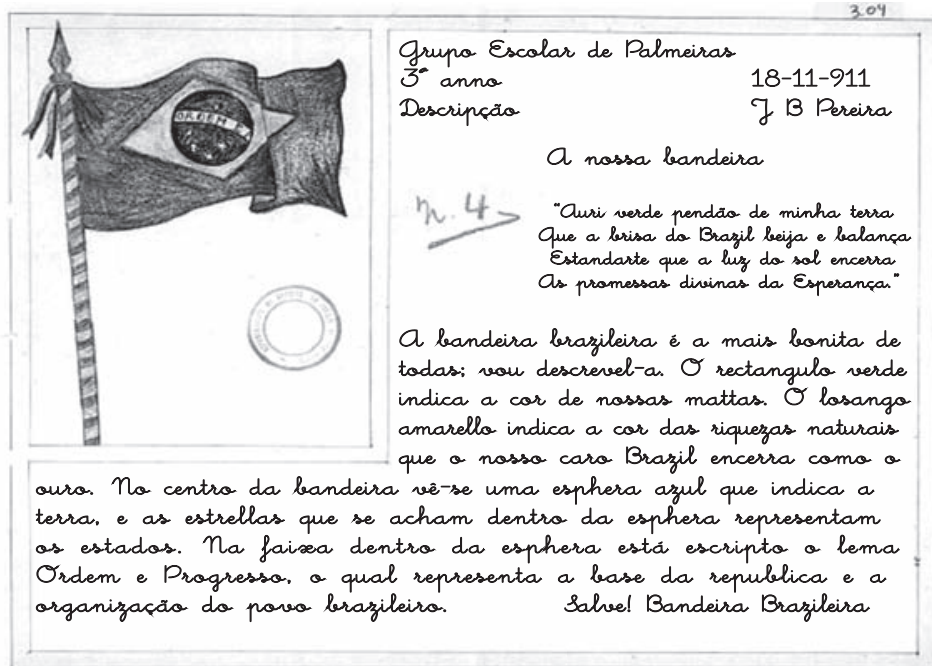 3.04
Grupo Escolar de Palmeiras
3º anno 18-11-911
Descripção J B Pereira
A nossa bandeira
n. 4
"Auri verde pendão de minha terra
Que a brisa do Brazil beija e balança
Estandarte que a luz do sol encerra
As promessas divinas da Esperança."
ORDEM E
A bandeira brazileira é a mais bonita de
todas; vou descrevel-a. O rectangulo verde
indica a cor de nossas mattas. O losango
amarello indica a cor das riquezas naturais
que o nosso caro Brazil encerra como o
ouro. No centro da bandeira vê-se uma esphera azul que indica a
terra, e as estrellas que se acham dentro da esphera representam
os estados. Na faixa dentro da esphera está escripto o lema
Ordem e Progresso, o qual representa a base da republica e a
organização do povo brazileiro. Salve! Bandeira Brazileira